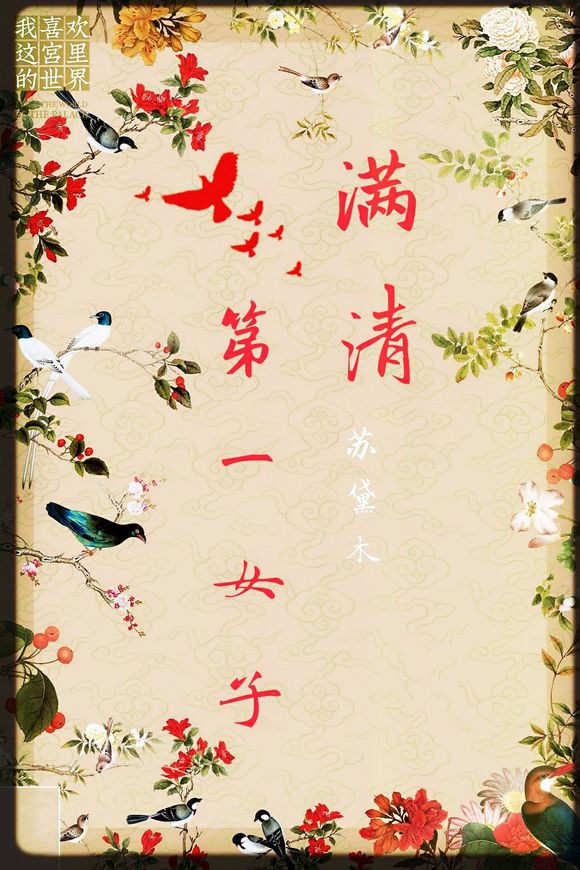 我喜欢
这宫里
的世界
THE WORLD
THE PALACE
满清
第一女子
苏黛木